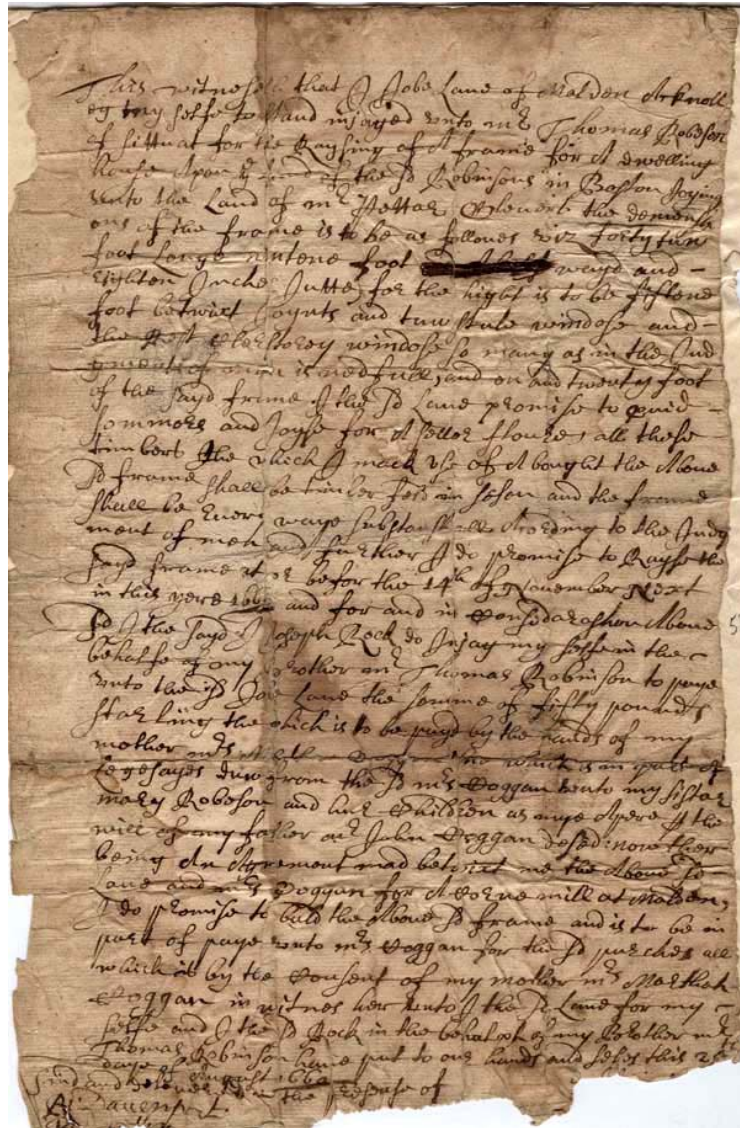 This witneseth that I Jobe Lane of Malden Acknoll
eg my selfe to stand injaged unto mr Thomas Robeson
of sittuat for the Raysing of A frame for A dwelling
house Apon ye Land of the sd Robinsons in Boston Joying
unto the Land of mr the demensi
ons of the frame is to be as followes viz forty tun
foot Longe foot wayd and -
Eighten Inches Jutte, for the hight is to be fiftene
foot betwixt Joynts and tun windose and -
the windose so many as in the Jud
gments of men is nedfull, and on and twenty foot
of the sayd frame I the sd Lane promise to
sommors and Joyse for A sellor floure, all these
timbers the which I mack use of Abought the Above
sd frame shall be timber feld in seson and the frame
shall be Every waye substansiall Acording to the Judg
ment of men and further I do promise to Rayse the
sayd frame at or befor the 14th of November Next
in this yere and for and in Consedarashon Above
sd I the sayd Joseph Rock do Injag my selfe in the -
behalfe of my brother mr Thomas Robinson to paye
unto the sd Jobe Lane the somme of fifty pounds
starling the which is to be payd by the hands of my
mother mrs which is in part of
Legesayes duw from the sd mrs Coggan unto my sistar
mary Robeson and har Children as maye Apere At the
will of my father mr John Coggan desed: now ther
being An Agrement mad betwixt me the Above sd
Lane and mrs Coggan for A Corne mill at Malden,
I do promise to buld the Above sd frame and is to be in
part of paye unto mrs Coggan for the sd purches all
which is by the Consent of my mother mrs Marthah
Coggan in witnes her unto I the sd Lane for my -
selfe and I the sd Rock in the behalfe of my Brother mr
Thomas Robinson have put to our hands and seles this
daye of August
Sind and delevered in the presense of